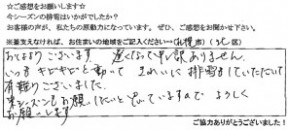 ☆ご感想をお願いします☆
今シーズンの排雪はいかがでしたか?
お客様の声が、私たちの原動力になっています。ぜひ、ご感想をお聞かせ下さい。
※差支えなければ、お住まいの地域をご記入ください→(札幌市)(
おはようございます 遅くなって申し訳ありません。
いつもキビキビと動いて きれいに排雪をしていただいて
有難うございました。
来シーズンもお願いしたいと思っていますので よろしく
お願いします
ご協力ありがとうございました!